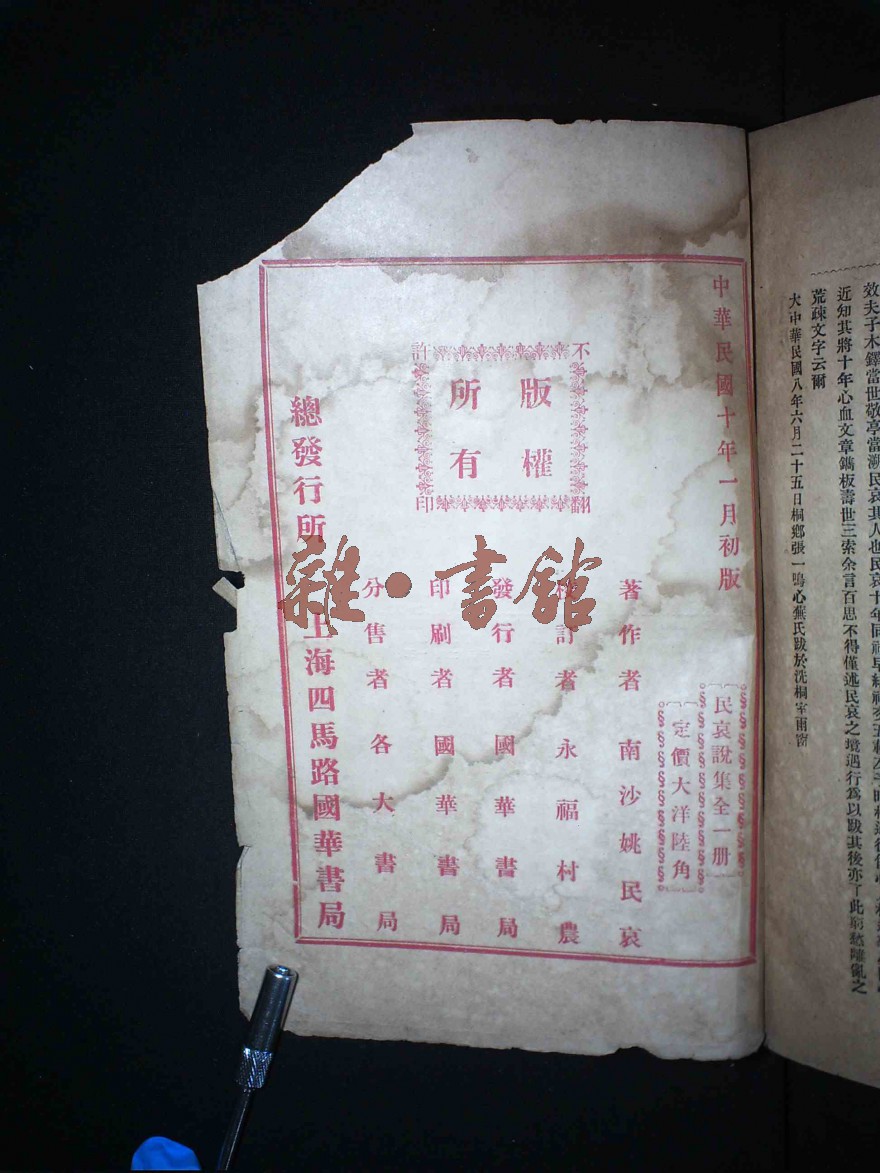 效夫子木鐸當世敬亭當
近知其將十年心血文章鐫板壽世三索余言百思不得僅述民哀之境遇行爲以跋其後亦
荒疎文字云爾
大中華民國八年六月二十五日桐鄉張一鳴心蕪氏跋於洗桐室雨窗
中華民國十年一月初版
民哀說集全一册
定價大洋陸角
不許翻印
版權
所有
著作者 南沙姚民哀
訂者 永福村農
發行者 國華書局
印刷者 國華書局
分售者 各大書局
總發行所 上海四馬路國華書局
雜·書館